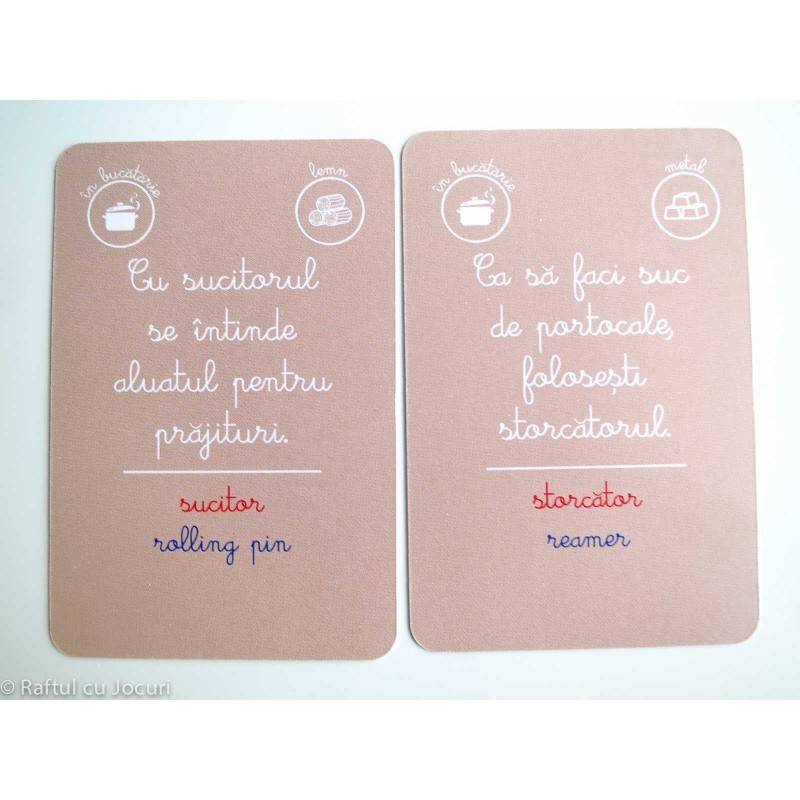 în bucătărie
lemn
Cu sucitorul
se întinde
aluatul pentru
prăjituri.
sucitor
rolling pin
în bucătărie
metal
Ca să faci suc
de portocale,
folosești
storcătorul.
storcător
reamer
© Raftul cu Jocuri